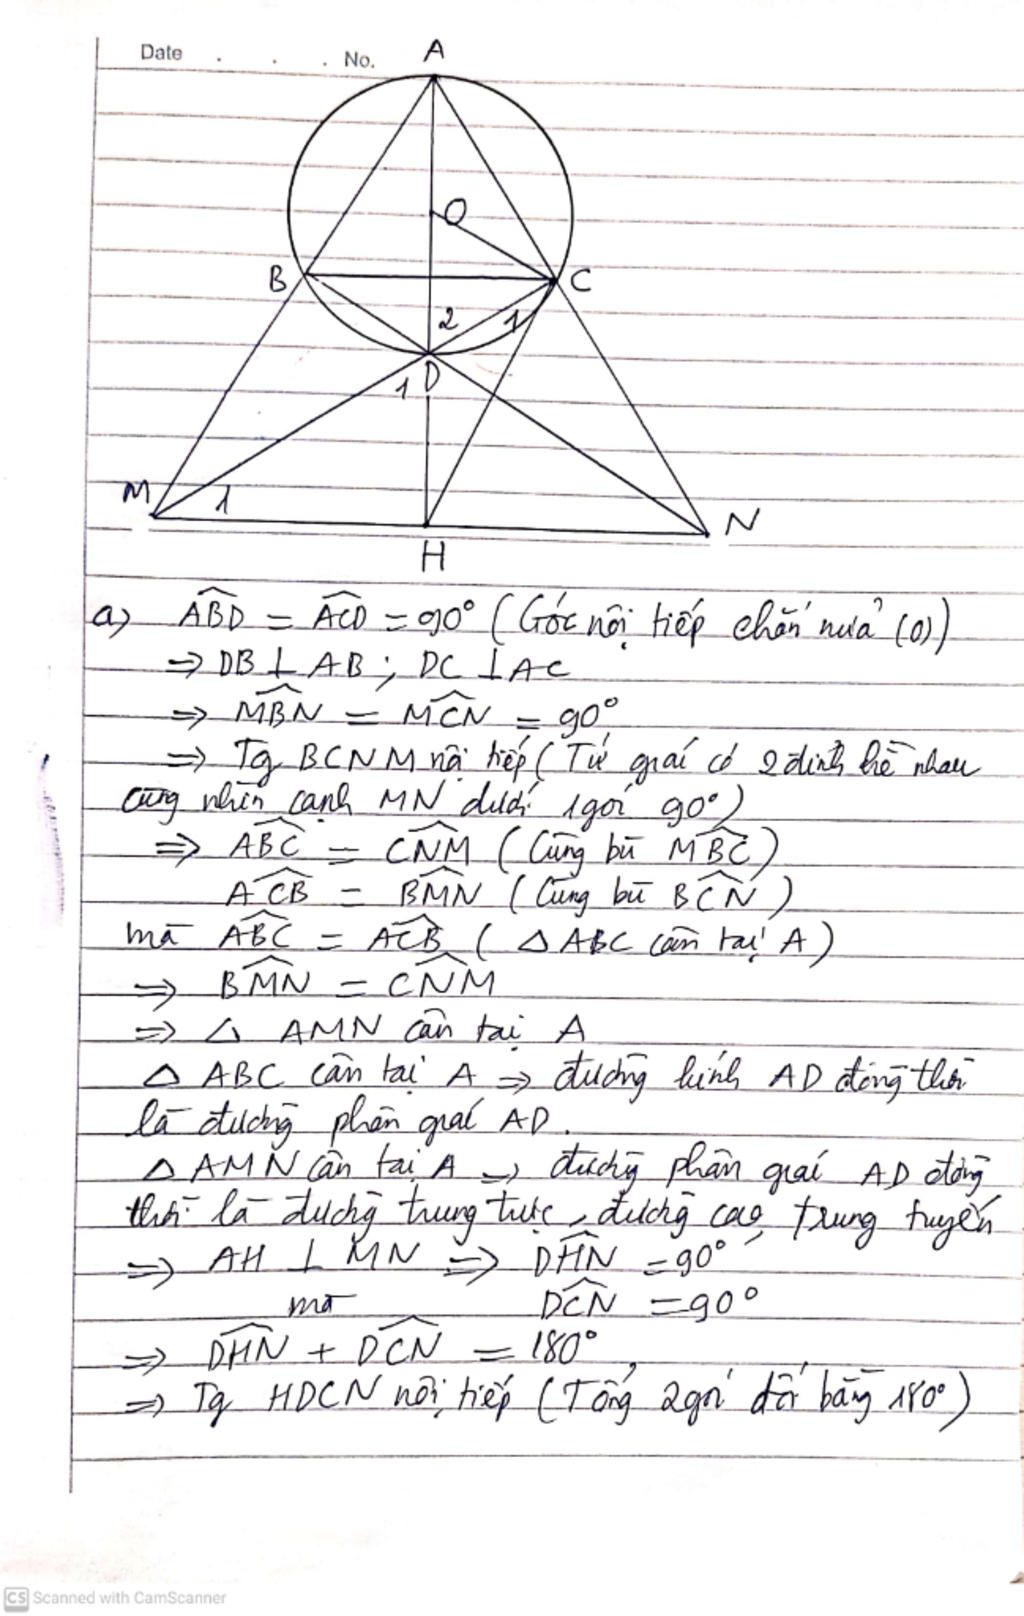 Date . . . No.
A
O
B
C
2
1
1
D
M
1
N
H
a) ABD̂ = ACD̂ = 90° (Góc nội tiếp chắn nửa (O))
⇒ DB ⊥ AB ; DC ⊥ AC
⇒ MBN̂ = MCN̂ = 90°
⇒ Tg BCNM nội tiếp (Tứ giác có 2 đỉnh kề nhau
cùng nhìn cạnh MN dưới 1 góc 90°)
⇒ ABĈ = CNM̂ (Cùng bù MBĈ)
ACB̂ = BMN̂ (Cùng bù BCN̂)
mà ABĈ = ACB̂ (△ ABC cân tại A)
⇒ BMN̂ = CNM̂
⇒ △ AMN cân tại A
△ ABC cân tại A ⇒ đường kính AD đồng thời
là đường phân giác AD.
△ AMN cân tại A ⇒ đường phân giác AD đồng
thời là đường trung trực, đường cao, trung tuyến
⇒ AH ⊥ MN ⇒ DHN̂ = 90°
mà DCN̂ = 90°
⇒ DHN̂ + DCN̂ = 180°
⇒ Tg HDCN nội tiếp (Tổng 2 góc đối bằng 180°)
CS Scanned with CamScanner